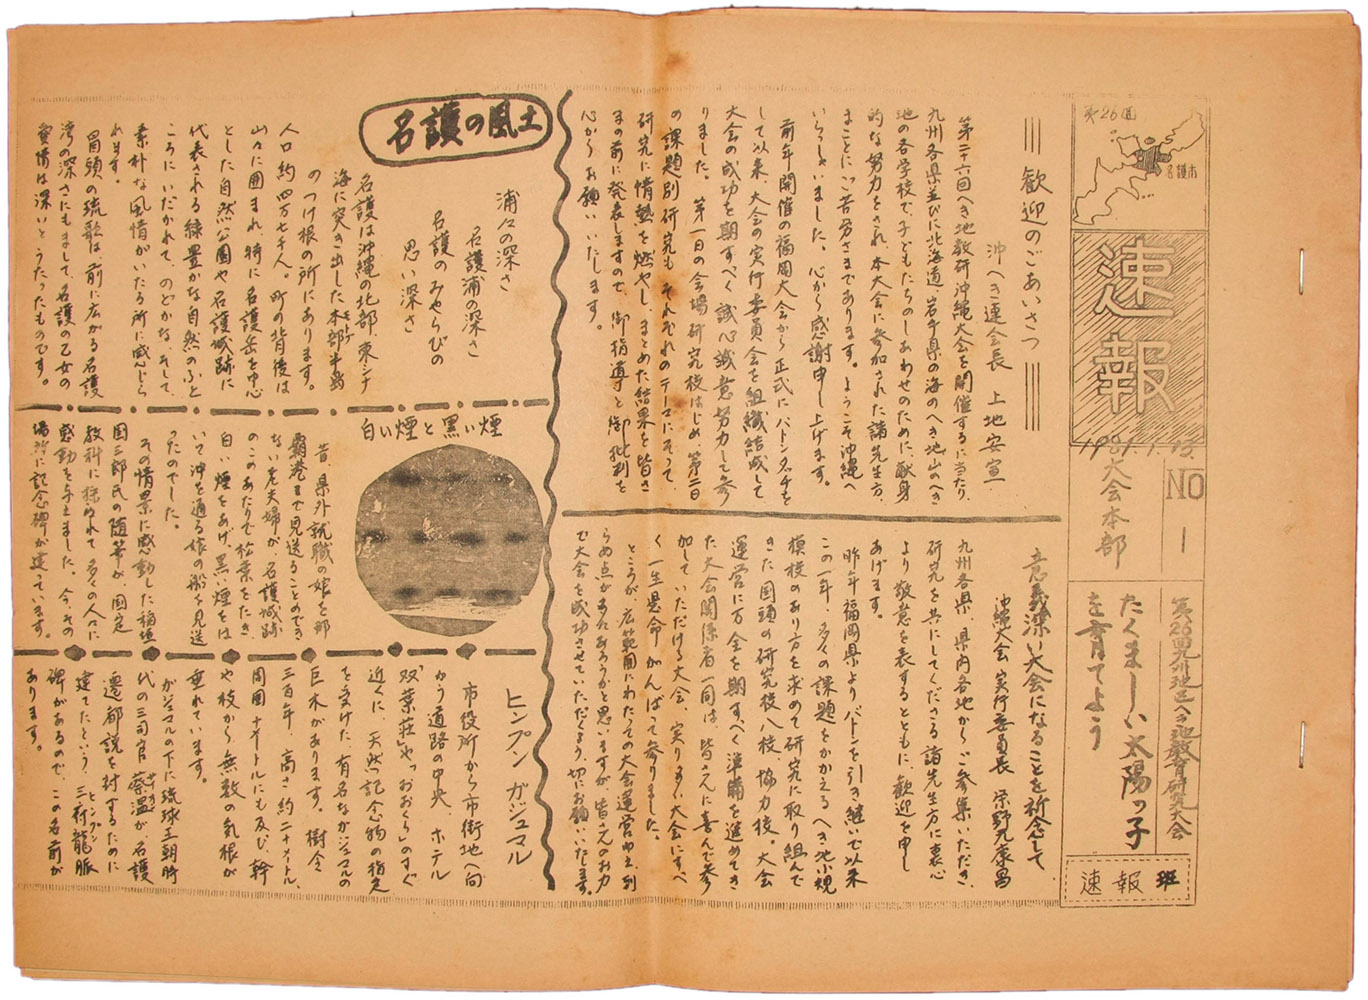 第26回
名護市
速報
1981.1.13.
大会本部
NO 1
第26回九州地区へき地教育研究大会
たくましい太陽ッ子
を育てよう
速報班
歓迎のごあいさつ
沖へき連会長 上地安宣
第二十六回へき地教研沖縄大会を開催するに当たり、
九州各県並びに北海道、岩手県の海のへき地山のへき
地の各学校で、子どもたちのしあわせのために、献身
的な努力をされ、本大会に参加された諸先生方、
まことにご苦労さまであります。ようこそ沖縄へ
いらっしゃいました。心から感謝申し上げます。
前年開催の福岡大会から正式にバトンタッチを
して以来、大会の実行委員会を組織結成して
大会の成功を期すべく誠心誠意努力して参
りました。第一日の会場研究校はじめ、第二日
の課題別研究も、それぞれのテーマにそって、
研究に情熱を燃やし、まとめた結果を皆さ
まの前に発表しますので、御指導と御批判を
心からお願いいたします。
意義深い大会になることを祈念して
沖縄大会実行委員長
九州各県、県内各地からご参集いただき、
研究を共にしてくださる諸先生方に衷心
より敬意を表するとともに、歓迎を申し
あげます。
昨年福岡県よりバトンを引き継いで以来
この一年、多くの課題をかかえるへき地小規
模校のあり方を求めて研究に取り組んで
きた国頭の研究校八校、協力校。大会
運営に万全を期すべく準備を進めてき
た大会関係者一同は、皆さんに喜んで参
加していただける大会、実り多い大会にすべ
く一生懸命がんばって参りました。
ところが、広範囲にわたっての大会運営の為、到
らぬ点が多々あろうかと思いますが、皆さんのお力
で大会を成功させていただくよう、切にお願いいたします。
名護の風土
浦々の深さ
名護浦の深さ
名護のみやらびの
思い深さ
名護は沖縄の北部、東シナ
海に突き出した本部半島
モトブ
のつけ根の所にあります。
人口約四万七千人。町の背後は
山々に囲まれ、特に名護岳を中心
とした自然公園や名護城跡に
代表される緑豊かな自然のふと
ころにいだかれて、のどかな、そして
素朴な風情がいたる所に感じら
れます。
冒頭の琉歌は、前に広がる名護
湾の深さにもまして、名護の乙女の
愛情は深いとうたったものです。
白い煙と黒い煙
昔、県外就職の娘を那
覇港まで見送ることのでき
ない老夫婦が、名護城跡
のこのあたりで松葉をたき、
白い煙をあげ、黒い煙をは
いて沖を通る娘の船を見送
ったのでした。
その情景に感動した稲垣
国三郎氏の随筆が、国定
教科に採められて多くの人々に
感動を与えました。今、その
場所に記念碑が建っています。
ヒンプン ガジュマル
市役所から市街地へ向
かう道路の中央、ホテル
「双葉荘」や「おおくら」のすぐ
近くに、天然記念物の指定
を受けた、有名なガジュマルの
巨木があります。樹令
三百年、高さ約二十メートル、
周囲十メートルにも及び、幹
や枝から無数の気根が
垂れています。
ガジュマルの下に琉球王朝時
代の三司官蔡温が、名護
遷都説を封ずるために
建てたという、三府龍脈
ヒンプン
碑があるので、この名前が
あります。